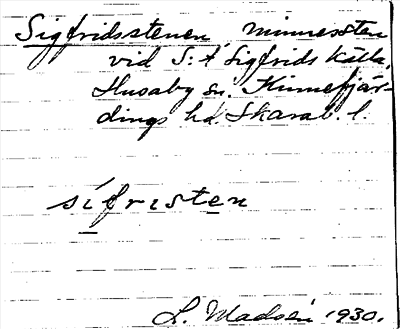 Sigfridsstenen minnessten
vid S:t Sigfrids källa,
Husaby sn. Kinnefjär-
dings hd. Skarab. l.
sifristen
L. Madsén 1930.